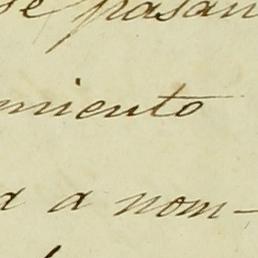 se pasan
miento
a a nom-